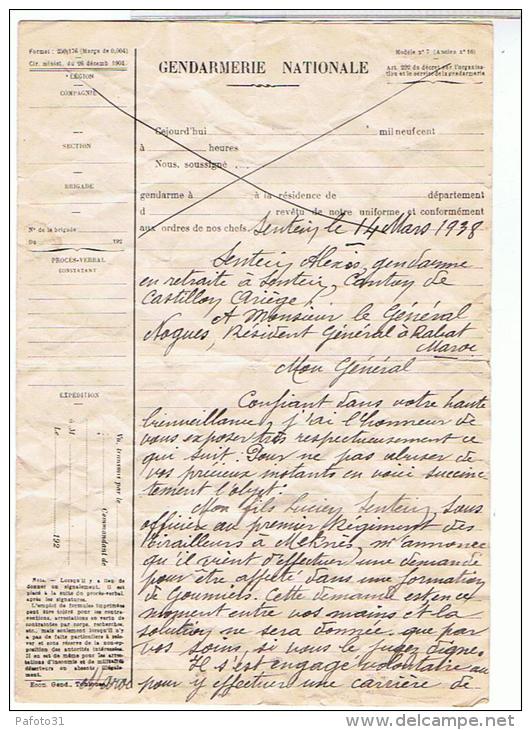 Format : 250/176 (Marge de 0,004)
Cir. minist. du 26 décemb 1901.
LÉGION
COMPAGNIE
SECTION
BRIGADE
N° de la brigade
Du 192
PROCÈS-VERBAL
CONSTATANT
EXPÉDITION
à M
Le 192
Vu, transmis par le Commandant de
Nota. — Lorsqu'il y a lieu de
donner un signalement, il est
placé à la suite du procès-verbal
après les signatures.
L'emploi de formules imprimées
peut être toléré pour les contra-
ventions, arrestations en vertu
de contraintes par corps, réquisitoires,
etc., mais seulement lorsqu'il n'y
a pas de faits particuliers à rele-
ver et sous réserve de la non-oppo-
sition des autorités intéressées.
Il en est de même pour les arres-
tations d'insoumis et de militaires
déserteurs ou absents illégale-
ment.
Econ. Gend., Toulouse
Modèle n° 7 (Ancien n° 16)
Art. 292 du décret sur l'organisa-
tion et le service de la gendarmerie
GENDARMERIE NATIONALE
Cejourd'hui mil neuf cent
à heures
Nous, soussigné
gendarme à à la résidence de département
d revêtu de notre uniforme et conformément
aux ordres de nos chefs. Sentein, le 14 Mars 1938
Sentein Alexis, gendarme
en retraite à Sentein, Canton de
Castillon Ariège
A Monsieur le Général
Nogues, Résident Général à Rabat
Maroc
Mon Général
Confiant dans votre haute
bienveillance, j'ai l'honneur de
vous exposer très respectueusement ce
qui suit. Pour ne pas abuser de
vos précieux instants en voici succinc-
tement l'objet.
Mon fils Lucien Sentein, sous
officier au premier Régiment des
Tirailleurs à Meknès, m'annonce
qu'il vient d'effectuer une demande
pour être affecté dans une formation
de Goumiers. Cette demande est en ce
moment entre vos mains et la
solution ne sera donnée que par
vos soins, si vous le jugez digne.
Il s'est engagé volontaire au
Maroc pour y effectuer une carrière de
Pafoto31
www.delcampe.net